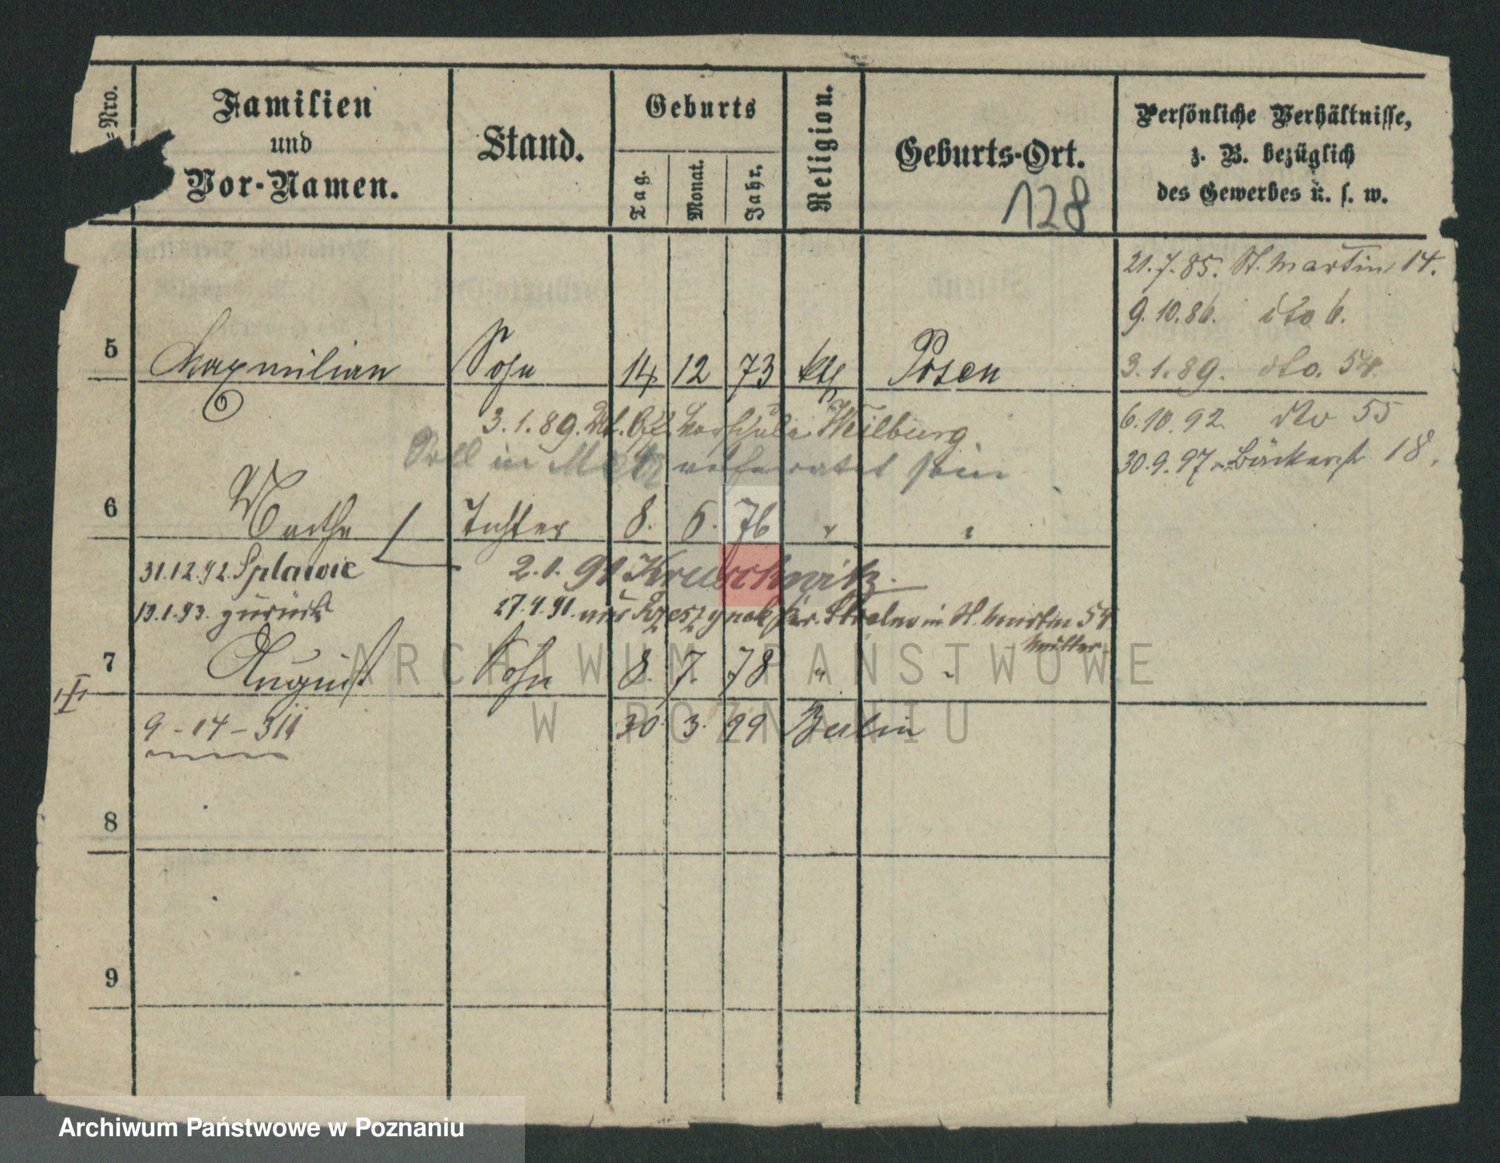 =Nro.
Familien
und
Vor-Namen.
Stand.
Geburts
Tag.
Monat.
Jahr.
Religion.
Geburts-Ort.
128
Persönliche Verhältnisse,
z. B. bezüglich
des Gewerbes u. s. w.
21.7.85. St. Martin 14.
9.10.86. dto 6.
3.1.89. dto. 54
6.10.92 dto 55
30.9.97 Bäckerst 18.
5 Maxymilian Sohn 14 12 73 kth Posen
3.1.89. Weilburg
Soll in Metz verheiratet sein
6 Marthe Tochter 8. 6. 76 " "
31.12.92. Splawie 2.1.91 Kruschwitz.
13.1.93. zurück 27.4.91. aus in St. Martin 54
Mutter.
7 August Sohn 8. 7. 78 " "
9-14-311 30. 3. 99 Berlin
8
9
ARCHIWUM PAŃSTWOWE
W POZNANIU
Archiwum Państwowe w Poznaniu